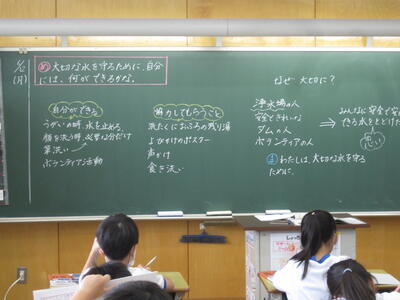 (月)
め 大切な水を守るために、自分
には、何ができるかな。
自分ができる
うがいの時、水を止める。
顔を洗う時、必要な分だけ
ボランティア活動
協力してもらうこと
洗たくにおふろの残り湯
よびかけポスター
声かけ
食き洗い
なぜ 大切に?
浄水場の人
安全きれいな
ダムの人
ボランティアの人
みんなに安全で安
できる水をとどけ
思い
ま わたしは、大切な水を守る
ために、